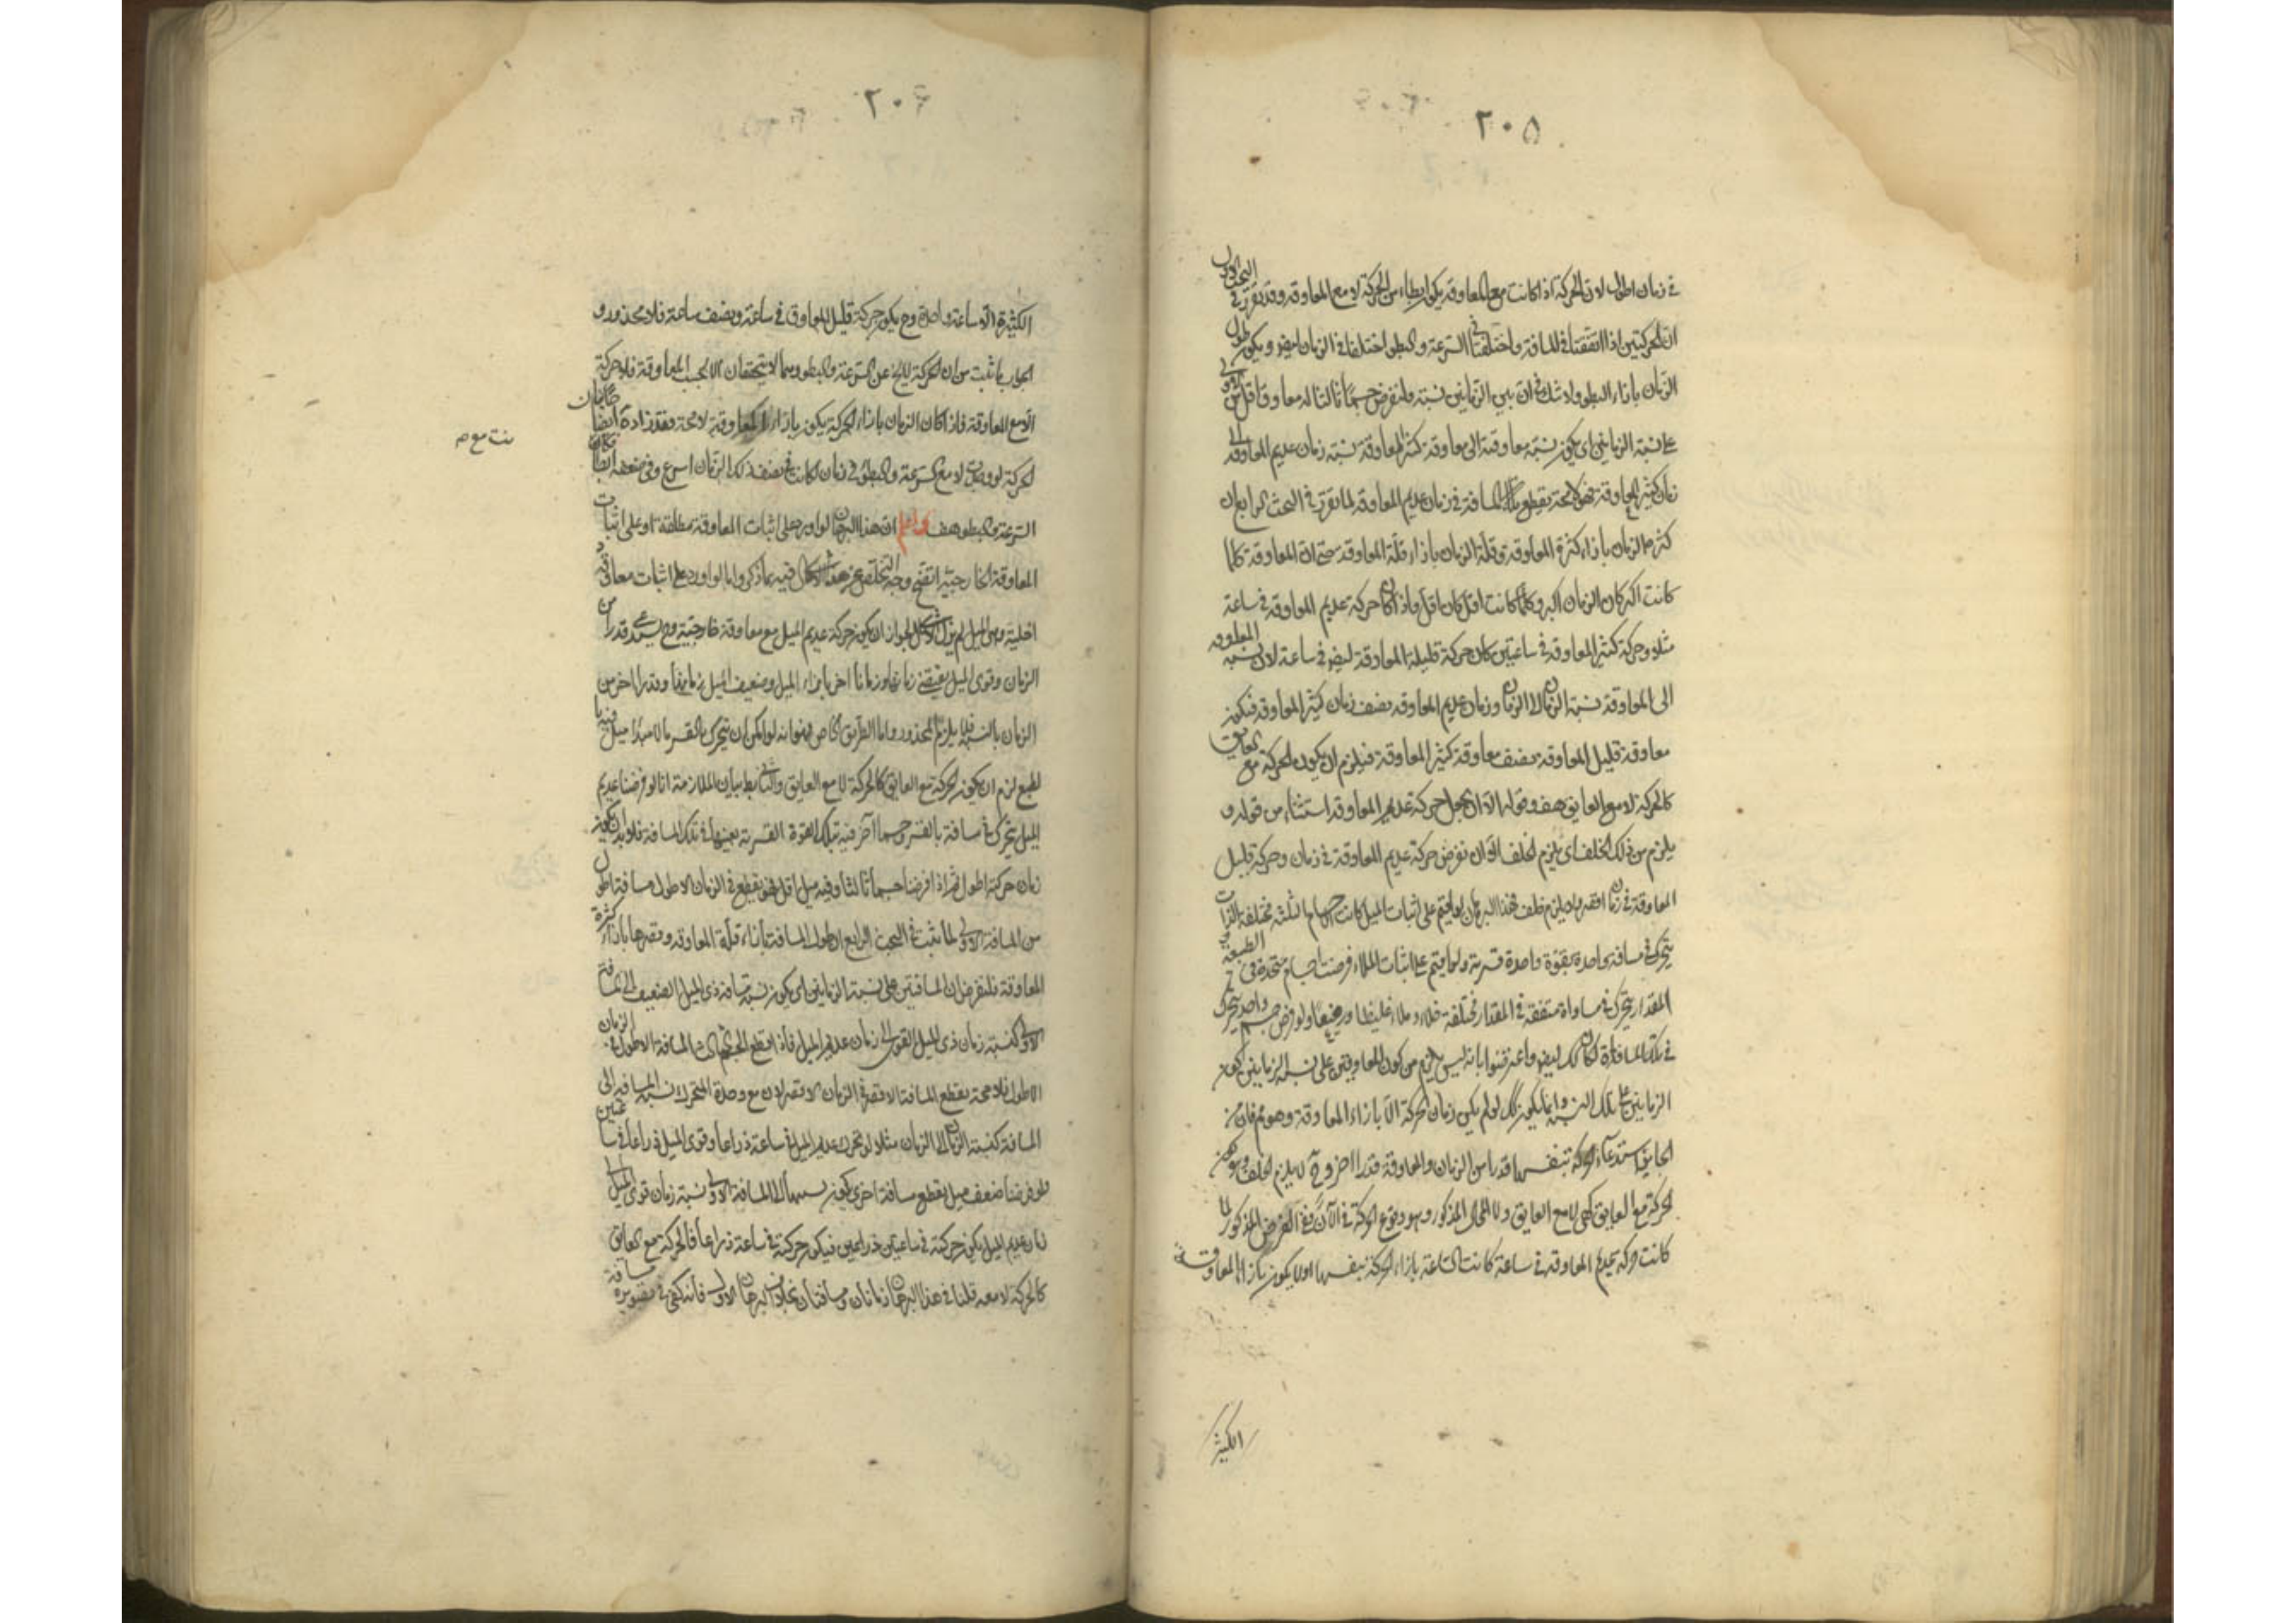 ٢٠٥
في زمان اطول لان الحركة اذا كانت مع المعاوقة يكون ابطاء من الحركة لا مع المعاوقة وقد تقرر في البحث الاول
ان الحركتين اذا اتفقتا في المسافة واختلفتا في السرعة والبطوء اختلفا في الزمان ايضا ويكون طول
الزمان بازاء البطوء ولا شك في ان بين الزمانين نسبة ولنفرض جسما ثالثا له معاوقة اقل من الاولى
على نسبة الزمانين اي يكون نسبة معاوقته الى معاوقة كثير المعاوقة نسبة زمان عديم المعاوقة الى
زمان كثير المعاوقة فهو لا محة يقطع تلك المسافة في زمان عديم المعاوقة لما تقرر في البحث الرابع ان
كثرة الزمان بازاء كثرة المعاوقة وقلة الزمان بازاء قلة المعاوقة حتى ان المعاوقة كلما
كانت اكثر كان الزمان اكثر وكلما كانت اقل كان اقل واذا كان حركة عديم المعاوقة في ساعة
مثلا وحركة كثير المعاوقة في ساعتين كان حركة قليلة المعاوقة ايضا في ساعة لان نسبة المعاوقة
الى المعاوقة نسبة الزمان الى الزمان وزمان عديم المعاوقة نصف زمان كثير المعاوقة فيكون
معاوقة قليل المعاوقة نصف معاوقة كثير المعاوقة فيلزم ان يكون الحركة مع العايق
كالحركة لا مع العايق هف وقوله الا ان يجعل حركة عديم المعاوقة استثناء من قوله و
يلزم من ذلك الخلف اي يلزم الخلف الا ان نفرض حركة عديم المعاوقة في زمان وحركة قليل
المعاوقة في زمان اقصر فلا يلزم خلف هذا البرهان لو اقيم على اثبات الميل كانت الاجسام الثلثة مختلفة الذات
يتحرك في مسافة واحدة بقوة واحدة قسرية ولما يقيم على اثبات الملاء فرضت اجسام متحدة في الطبيعة و
المقدار يتحرك في مساواة متفقة في المقدار مختلفة خلاء وملاء غليظا ورقيقا ولو فرض جسم واحد يتحرك
في تلك المسافات لكان كذلك ايضا واعترضوا بانه ليس يلزم من كون المعاوقتين على نسبة الزمانين كون
الزمانين على تلك النسبة وانما يكون كذلك لو لم يكن زمان الحركة الا بازاء المعاوقة وهو مم فان من
الجايز استدعاء الحركة بنفسها قدرا من الزمان والمعاوقة قدرا اخر وح لا يلزم الخلف وهو كون
الحركة مع العايق كهي لا مع العايق ولا المحال المذكور وهو وقوع الحركة في الآن ففي الفرض المذكور لما
كانت حركة عديم المعاوقة في ساعة كانت الساعة بازاء الحركة بنفسها ولا يكون بازاء المعاوقة
الكثيرة
٢٠٦
الكثيرة الا ساعة واحدة وح يكون حركة قليل المعاوق في ساعة ونصف ساعة فلا محذور و
الجواب ما ثبت من ان الحركة لا يخ عن السرعة والبطوء وهما لا يتحققان الا بحسب المعاوقة فلا حركة
الا مع المعاوقة فاذا كان الزمان بازاء الحركة يكون بازاء المعاوقة لا محة وقد زاده ايضا
الحركة لو وجدت لا مع السرعة والبطوء في زمان لكانت في نصف ذلك الزمان اسرع وفي ضعفه ابطأ
السرعة والبطوء هف واعلم ان هذا البرهان لو اورد على اثبات المعاوقة مطلقة او على اثبات
المعاوقة الخارجية اتضح وجه التخلص عن هذا الاشكال فيه بما ذكر واما لو اورد على اثبات معاوقة
داخلية وهي الميل لم يزل الاشكال لجواز ان يكون حركة عديم الميل مع معاوقة خارجية وح يستدعي قدرا من
الزمان وقوى الميل يقتضي زمانها وزمانا اخر بازاء الميل وضعيف الميل زمانها وقدرا اخر من
الزمان بالنسبة فلا يلزم المحذور واما الطريق الخاص فهو انه لو امكن ان يتحرك بالقسر ما لا مبدأ ميل فيه با
لطبع لزم ان يكون الحركة مع العايق كالحركة لا مع العايق والتالي بط بيان الملازمة انا لو فرضنا عديم
الميل يتحرك في مسافة بالقسر وجسما آخر فيه بتلك القوة القسرية بعينها في تلك المسافة فلا بد ان يكون
زمان حركته اطول ثم اذا فرضنا جسما ثالثا وفيه ميل اقل فهو يقطع في الزمان الاطول مسافة اطول
من المسافة الاولى لما ثبت في البحث الرابع ان طول المسافة بازاء قلة المعاوقة وقصرها بازاء كثرة
المعاوقة فلنفرض ان المسافتين على نسبة الزمانين اي يكون نسبة مسافة ذي الميل الضعيف الى المسافة
الاولى كنسبة زمان ذي الميل القوي الى زمان عديم الميل فاذا قطع الجسم الثالث المسافة الاطول في الزمان
الاطول فلا محة يقطع المسافة الاقصر في الزمان الاقصر لان مع وحدة المتحرك نسبة المسافة الى
المسافة كنسبة الزمان الى الزمان مثلا لو تحرك عديم الميل في ساعة ذراعا وقوى الميل ذراعا في ساعتين
فلو فرضنا ضعف ميل يقطع مسافة اخرى يكون نسبتها الى المسافة الاولى نسبة زمان قوي الميل الى
زمان عديم الميل يكون حركته في ساعتين ذراعين فيكون حركته في ساعة ذراعا فالحركة مع العايق
كالحركة لا معه قلنا في هذا البرهان زمانان ومسافتان بخلاف البرهان الاول فانه يكفي في تصويره مسافة